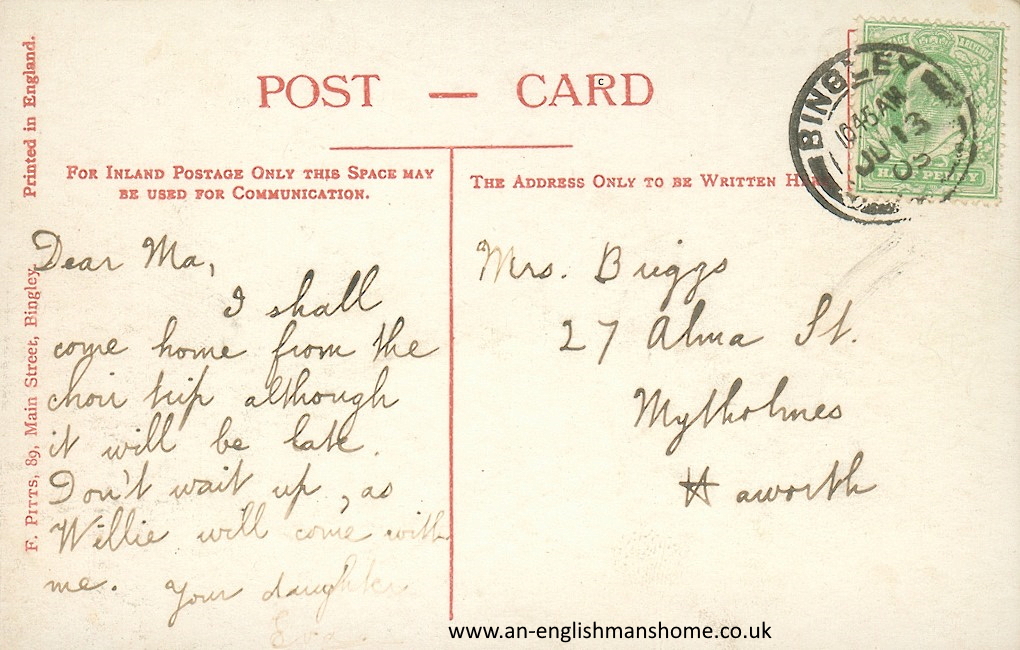 Printed in England.
F. PITTS, 89, Main Street, Bingley.
POST — CARD
FOR INLAND POSTAGE ONLY THIS SPACE MAY
BE USED FOR COMMUNICATION.
THE ADDRESS ONLY TO BE WRITTEN
BINGLEY
1045AM
JU 13
HALFPENNY
Dear Ma,
I shall
come home from the
choir trip although
it will be late.
Don't wait up, as
Willie will come with
me. Your daughter
Eva.
Mrs. Briggs
27 Alma St.
Mytholmes
Haworth
www.an-englishmanshome.co.uk